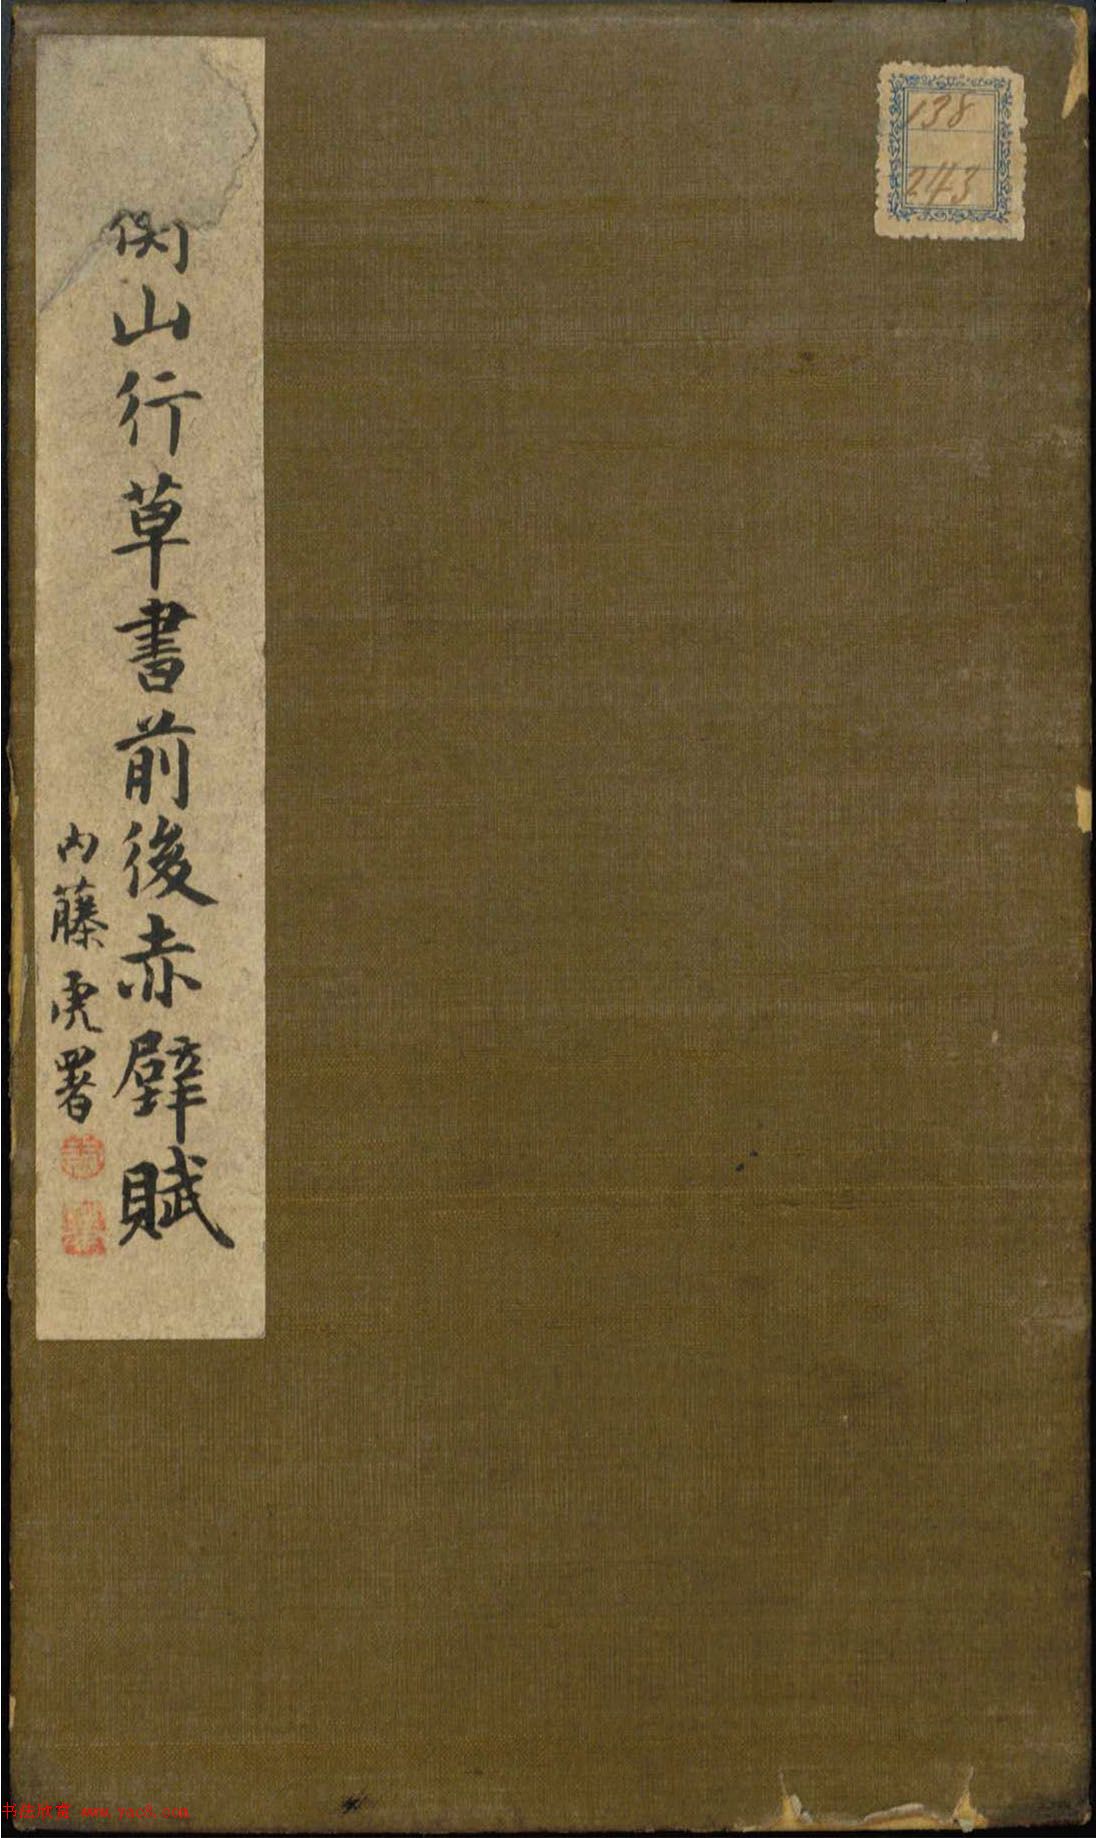 倪山行草書前後赤壁賦
内藤虎署
138
243
书法欣赏 www.yac8.com